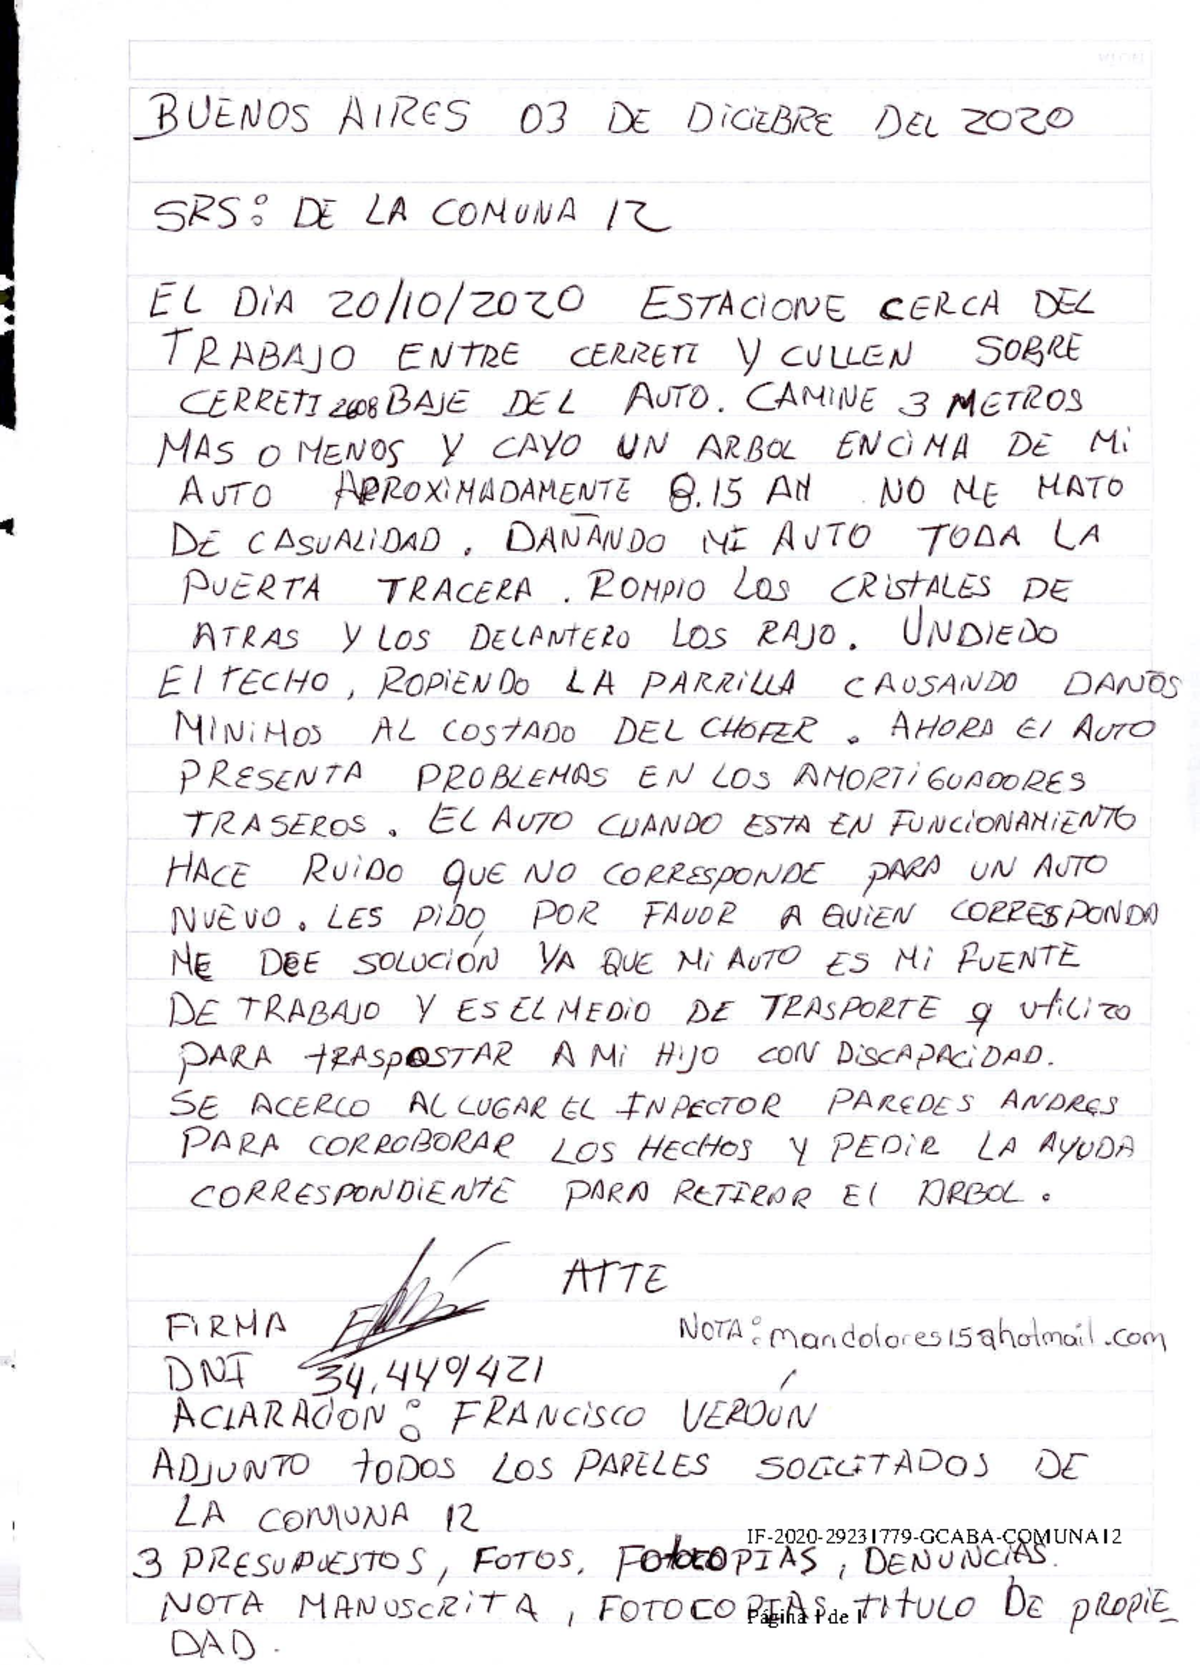 BUENOS AIRES 03 DE DICIEBRE DEL 2020
SRS: DE LA COMUNA 12
EL DIA 20/10/2020 ESTACIONE CERCA DEL
TRABAJO ENTRE CERRETI Y CULLEN SOBRE
CERRETI 2608 BAJE DEL AUTO. CAMINE 3 METROS
MAS O MENOS Y CAYO UN ARBOL ENCIMA DE MI
AUTO APROXIMADAMENTE 8.15 AM NO ME MATO
DE CASUALIDAD. DAÑANDO MI AUTO TODA LA
PUERTA TRACERA. ROMPIO LOS CRISTALES DE
ATRAS Y LOS DELANTERO LOS RAJO. UNDIEDO
El TECHO, ROPIENDO LA PARRILLA CAUSANDO DAÑOS
MINIMOS AL COSTADO DEL CHOFER. AHORA El AUTO
PRESENTA PROBLEMAS EN LOS AMORTIGUADORES
TRASEROS. EL AUTO CUANDO ESTA EN FUNCIONAMIENTO
HACE RUIDO QUE NO CORRESPONDE PARA UN AUTO
NUEVO. LES PIDO POR FAVOR A QUIEN CORRESPONDA
ME DEE SOLUCIÓN YA QUE MI AUTO ES MI FUENTE
DE TRABAJO Y ES EL MEDIO DE TRASPORTE q utilizo
PARA TRASPOSTAR A MI HIJO CON DISCAPACIDAD.
SE ACERCO AL LUGAR EL INPECTOR PAREDES ANDRES
PARA CORROBORAR LOS HECHOS Y PEDIR LA AYUDA
CORRESPONDIENTE PARA RETIRAR El ARBOL.
ATTE
FIRMA
NOTA: mandolores15@hotmail.com
DNI 34.449421
ACLARACION: FRANCISCO VERDÚN
ADJUNTO TODOS LOS PAPELES SOLICITADOS DE
LA COMUNA 12
IF-2020-29231779-GCABA-COMUNA12
3 PRESUPUESTOS, FOTOS, FOTOCOPIAS, DENUNCIAS.
NOTA MANUSCRITA, FOTOCOPIAS TITULO DE PROPIE_
Página 1 de 1
DAD.